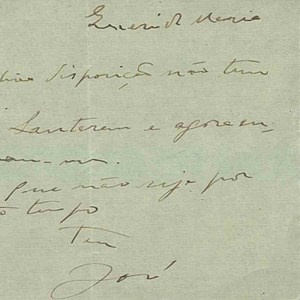 Querid Maria
disposição não tem
Santarem e agora en-
que não seja por
tempo
Teu
José